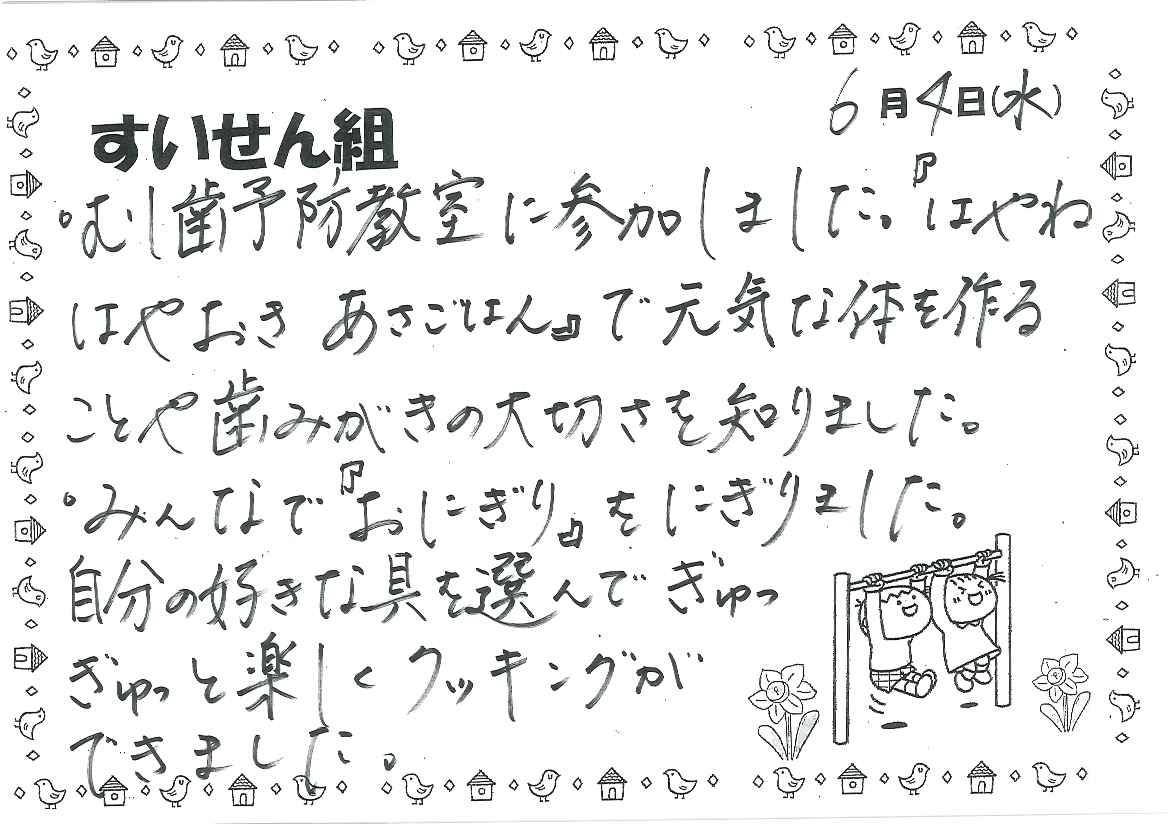 6月4日(水)
すいせん組
・むし歯予防教室に参加しました。『はやね
はやおき あさごはん』で元気な体を作る
ことや歯みがきの大切さを知りました。
・みんなで『おにぎり』をにぎりました。
自分の好きな具を選んで ぎゅっ
ぎゅっと楽しくクッキングが
できました。